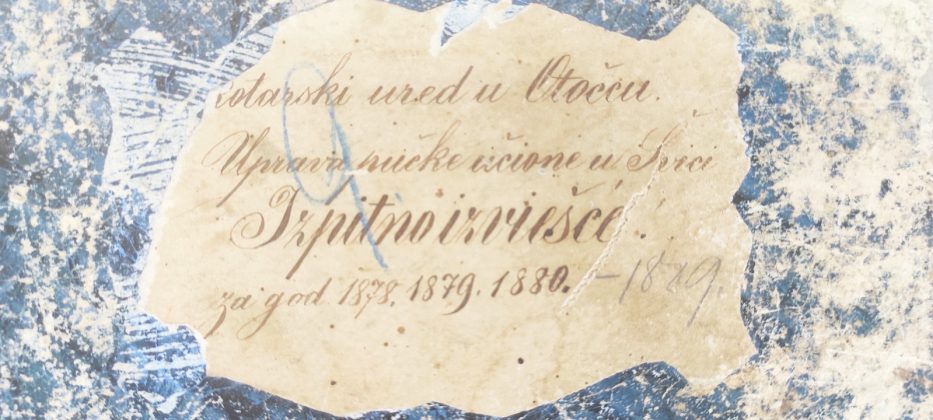 kotarski ured u Otočcu.
Uprava pučke učione u Švici
Izpitno izviešće.
za god 1878. 1879. 1880. – 1889.
9.